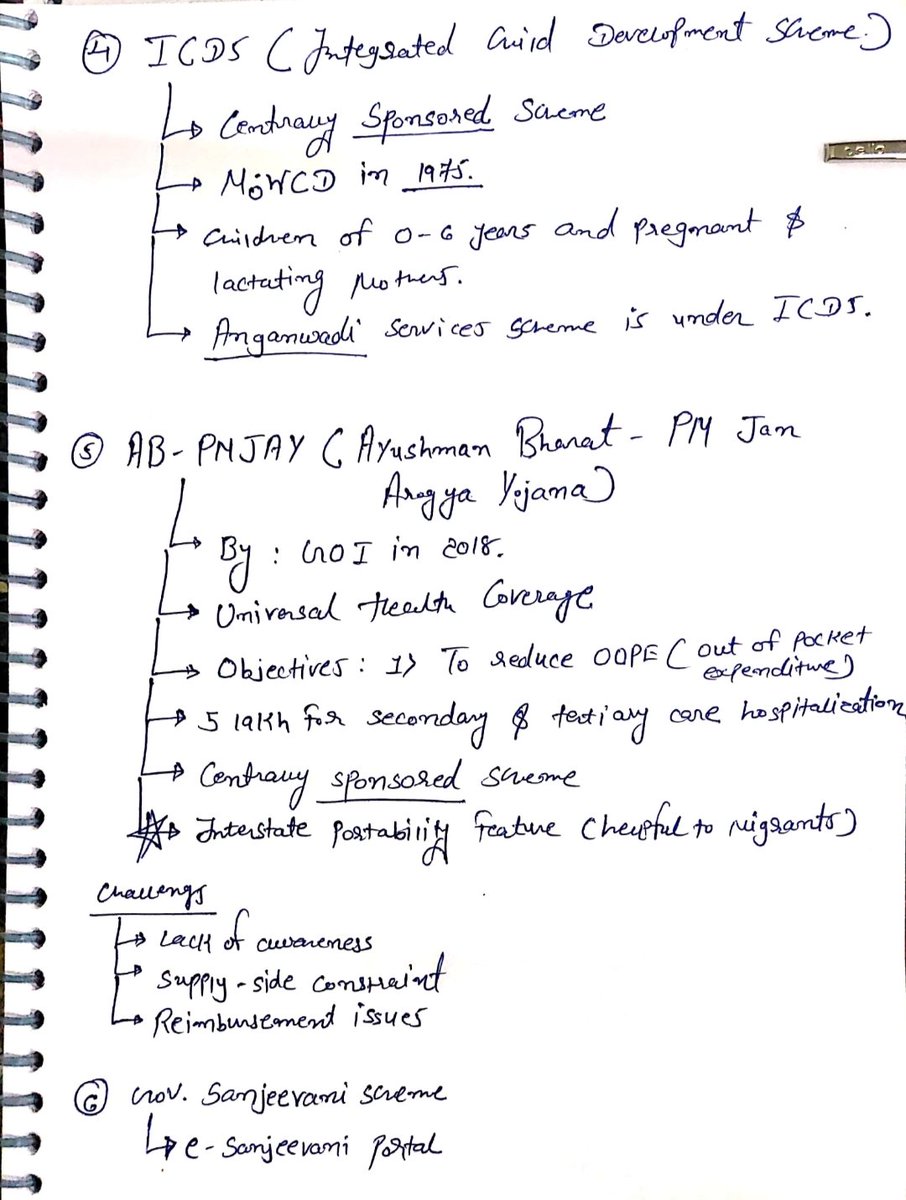 ④ ICDS (Integrated Child Development Scheme.)
→ Centrally Sponsored Scheme
→ MoWCD in 1975.
→ Children of 0-6 years and pregnant &
lactating Mothers.
→ Anganwadi services scheme is under ICDS.
⑤ AB-PMJAY (Ayushman Bharat - PM Jan
Arogya Yojana)
→ By : GOI in 2018.
→ Universal Health Coverage
→ Objectives : 1> To reduce OOPE (out of pocket
expenditure)
→ 5 lakh for seconday & tertiary care hospitalization
→ Centrally sponsored scheme
→ Interstate Portability feature (helpful to migrants)
Challengs
→ Lack of awareness
→ Supply-side constraint
→ Reimbursement issues
⑥ Gov. Sanjeevani scheme
→ e-Sanjeevani Portal